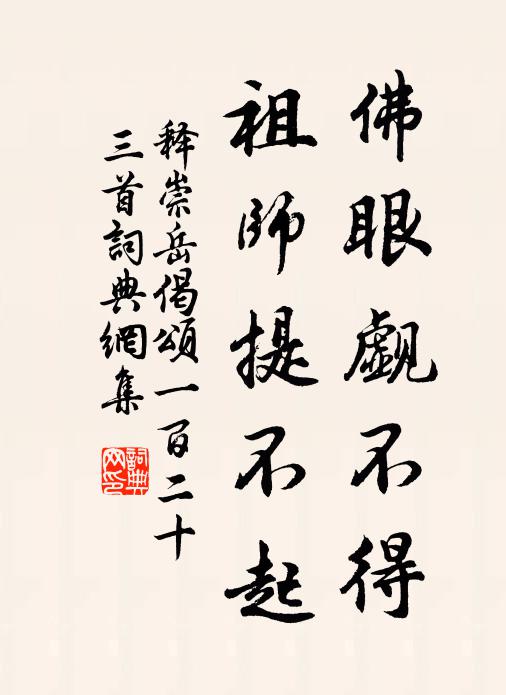 佛眼覷不得
祖師提不起
释崇岳偈頌一百二十
三首詞典網集
詞典网印